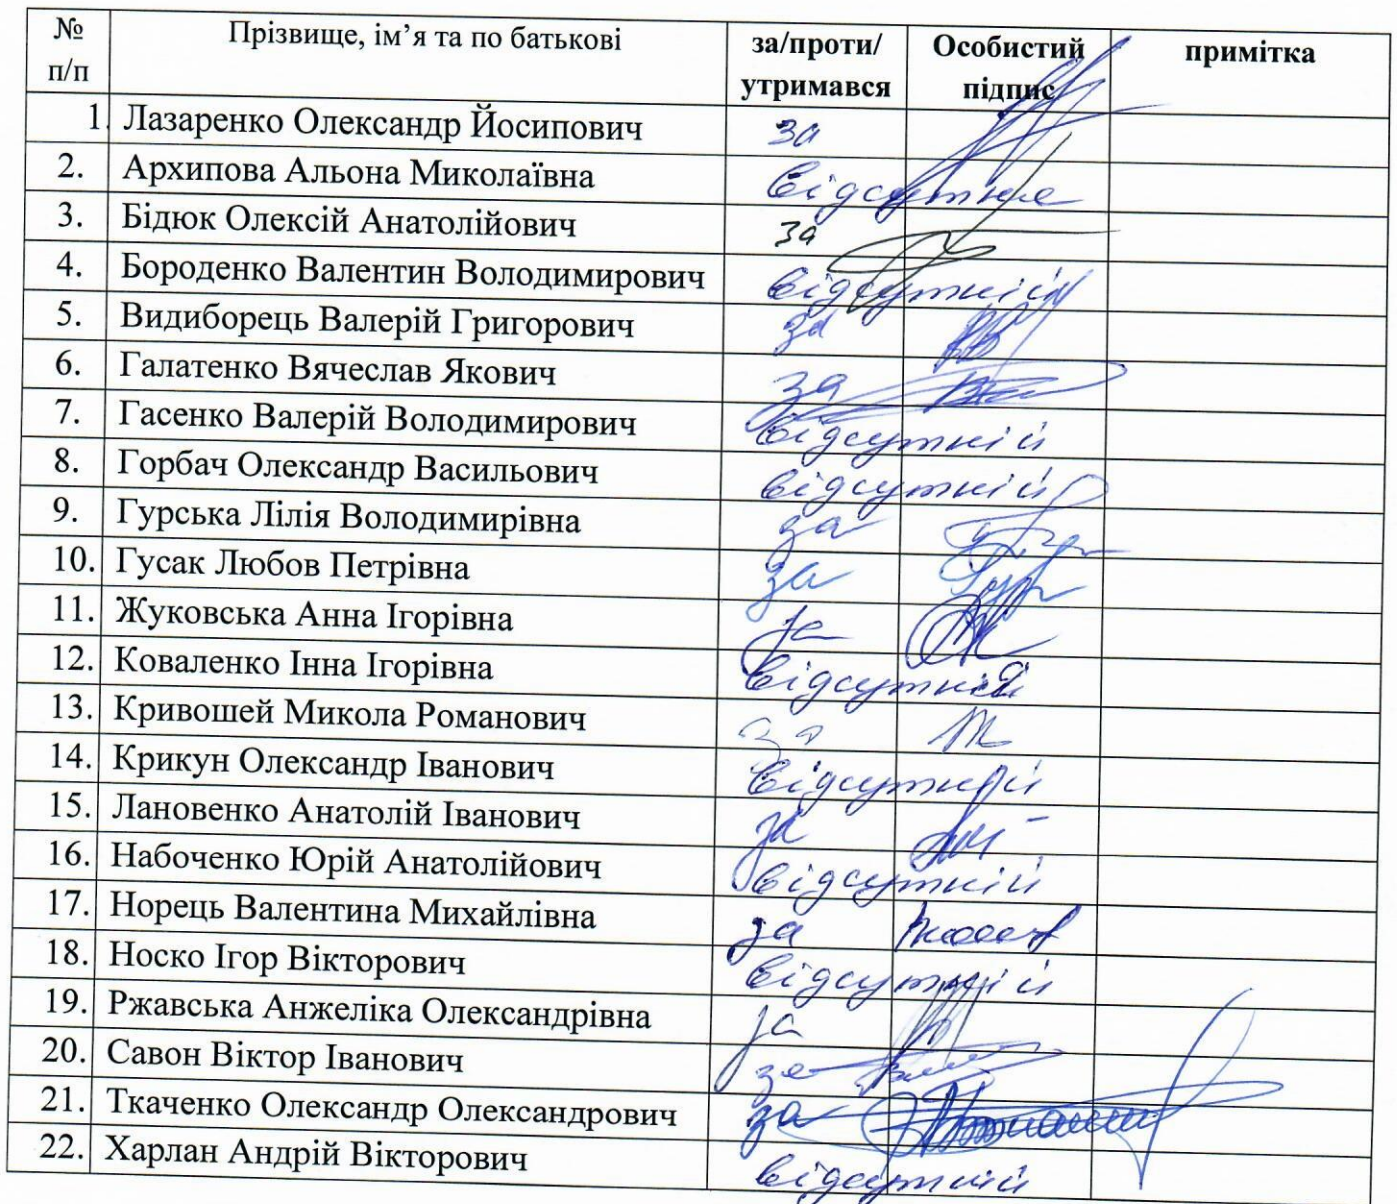 № п/п Прізвище, ім’я та по батькові за/проти/утримався Особистий підпис примітка
1. Лазаренко Олександр Йосипович за
2. Архипова Альона Миколаївна відсутня
3. Бідюк Олексій Анатолійович за
4. Бороденко Валентин Володимирович відсутній
5. Видиборець Валерій Григорович за
6. Галатенко Вячеслав Якович за
7. Гасенко Валерій Володимирович відсутній
8. Горбач Олександр Васильович відсутній
9. Гурська Лілія Володимирівна за
10. Гусак Любов Петрівна за
11. Жуковська Анна Ігорівна за
12. Коваленко Інна Ігорівна
13. Кривошей Микола Романович за
14. Крикун Олександр Іванович відсутній
15. Лановенко Анатолій Іванович за
16. Набоченко Юрій Анатолійович відсутній
17. Норець Валентина Михайлівна за
18. Носко Ігор Вікторович відсутній
19. Ржавська Анжеліка Олександрівна за
20. Савон Віктор Іванович за
21. Ткаченко Олександр Олександрович за
22. Харлан Андрій Вікторович відсутній